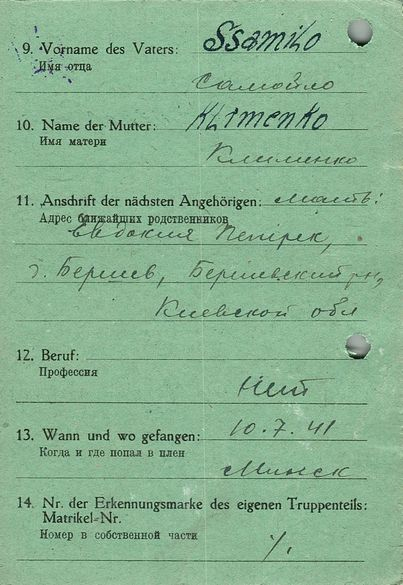 9. Vorname des Vaters: Ssamilo
Имя отца
Самойло
10. Name der Mutter: Klimenko
Имя матери
Клименко
11. Anschrift der nächsten Angehörigen: Мать:
Адрес ближайших родственников
Евдокия
г. Бершев, Бершевский рн,
Киевской обл
12. Beruf:
Профессия
Нет
13. Wann und wo gefangen: 10.7.41
Когда и где попал в плен
Минск
14. Nr. der Erkennungsmarke des eigenen Truppenteils:
Matrikel-Nr.
Номер в собственной части